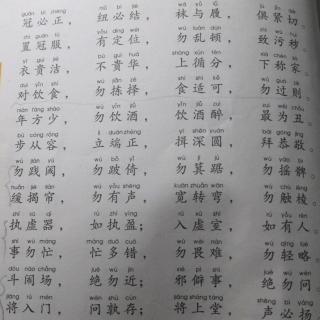 guān bì zhèng niǔ bì jié wà yǔ lǚ jù jǐn qiè
冠必正，纽必结，袜与履，俱紧切。
zhì guān fú yǒu dìng wèi wù luàn dùn zhì wū huì
置冠服，有定位，勿乱顿，致污秽。
yī guì jié bú guì huá shàng xún fèn xià chèn jiā
衣贵洁，不贵华，上循分，下称家。
duì yǐn shí wù jiǎn zé shí shì kě wù guò zé
对饮食，勿拣择，食适可，勿过则。
nián fāng shào wù yǐn jiǔ yǐn jiǔ zuì zuì wéi chǒu
年方少，勿饮酒，饮酒醉，最为丑。
bù cóng róng lì duān zhèng yī shēn yuán bài gōng jìng
步从容，立端正，揖深圆，拜恭敬。
wù jiàn yù wù bǒ yǐ wù jī jù wù yáo bì
勿践阈，勿跛倚，勿箕踞，勿摇髀。
huǎn jiē lián wù yǒu shēng kuān zhuǎn wān wù chù léng
缓揭帘，勿有声，宽转弯，勿触棱。
zhí xū qì rú zhí yíng rù xū shì rú yǒu rén
执虚器，如执盈，入虚室，如有人。
shì wù máng máng duō cuò wù wèi nán wù qīng lüè
事勿忙，忙多错，勿畏难，勿轻略。
dòu nào chǎng jué wù jìn xié pì shì jué wù wèn
斗闹场，绝勿近，邪僻事，绝勿问。
jiāng rù mén wèn shú cún jiāng shàng táng shēng bì yáng
将入门，问孰存，将上堂，声必扬。